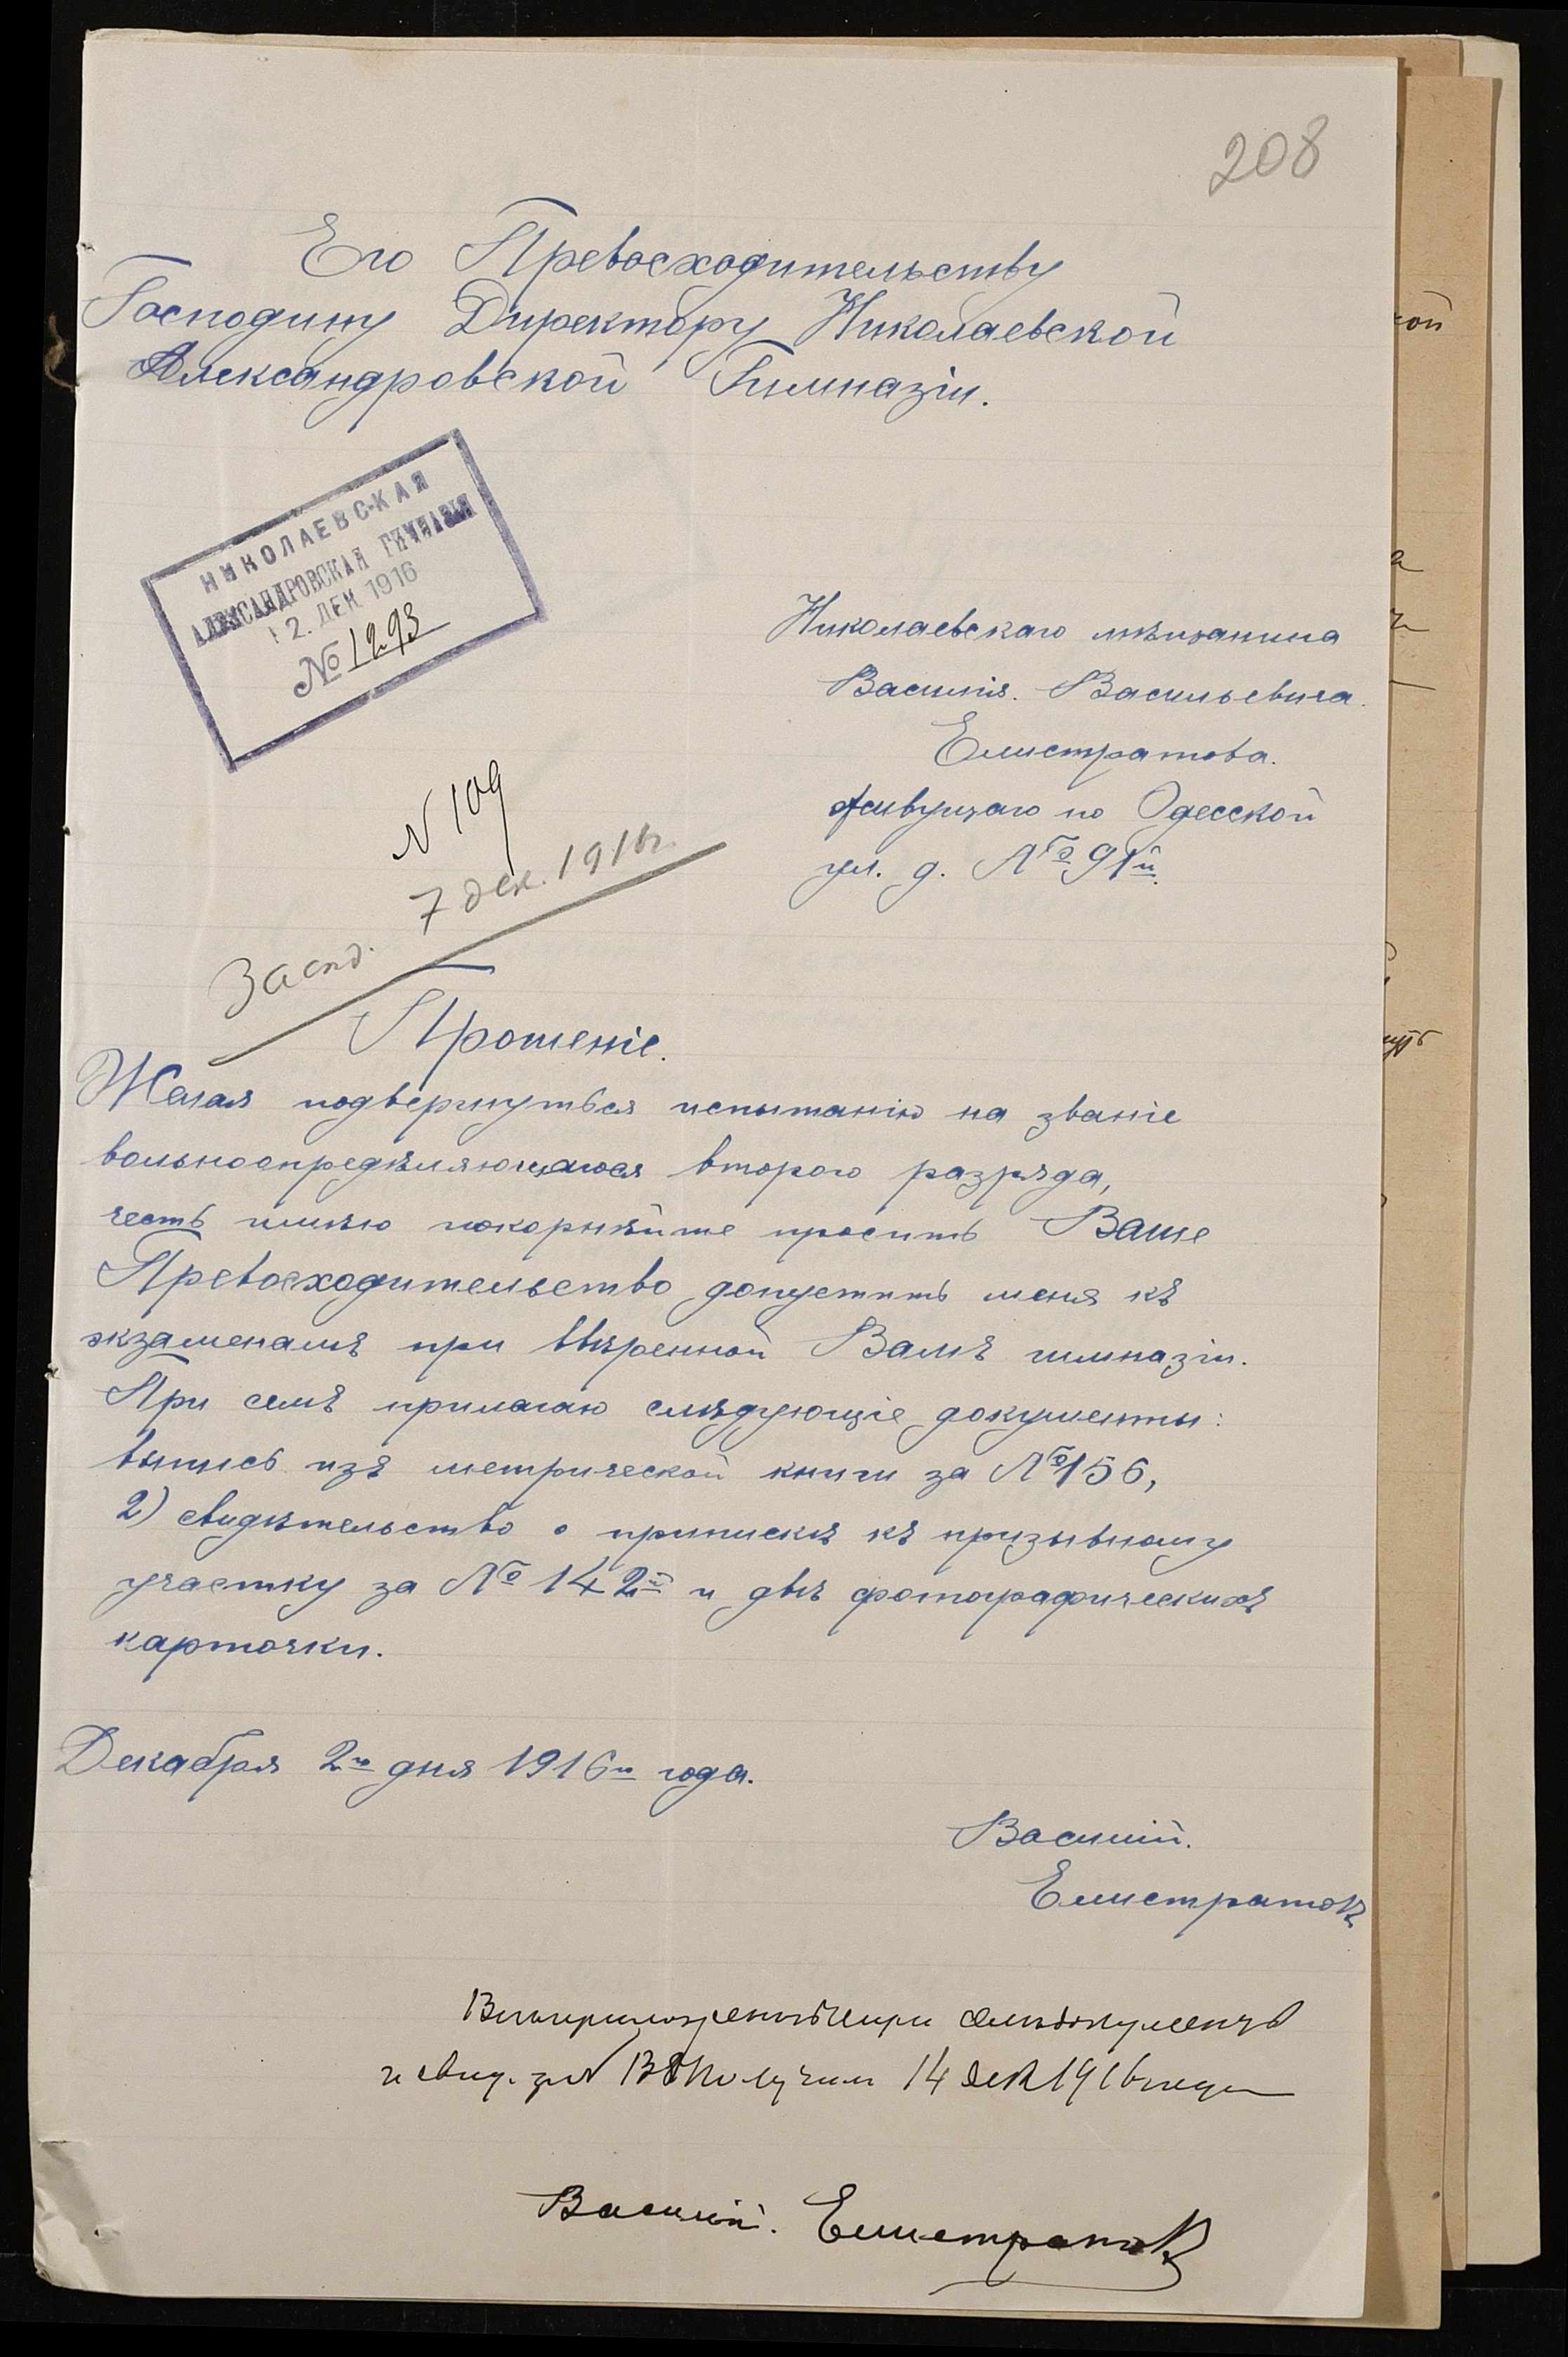 208
Его Превосходительству
Господину Директору Николаевской
Александровской Гимназіи.
НИКОЛАЕВСКАЯ
АЛЕКСАНДРОВСКАЯ ГИМНАЗІЯ
12. ДЕК 1916
№ 1293
Николаевскаго мѣщанина
Василія. Васильевича.
Елистратова.
живущаго по Одесской
ул. д. № 91й.
N 109
7 дек. 1916г.
Засѣд.
Прошеніе.
Желая подвергнуться испытанію на званіе
вольноопредѣляющагося второго разряда,
честь имѣю покорнѣйше просить Ваше
Превосходительство допустить меня къ
экзаменамъ при ввѣренной Вамъ гимназіи.
При семъ прилагаю слѣдующіе документы:
выпись изъ метрической книги за № 156,
2) свидѣтельство о припискѣ къ призывному
участку за № 142й и двѣ фотографическихъ
карточки.
Декабря 2го дня 1916го года.
Василій.
Елистратовъ
и свид. за № получилъ 14 дек 1916 года
Василій. Елистратовъ